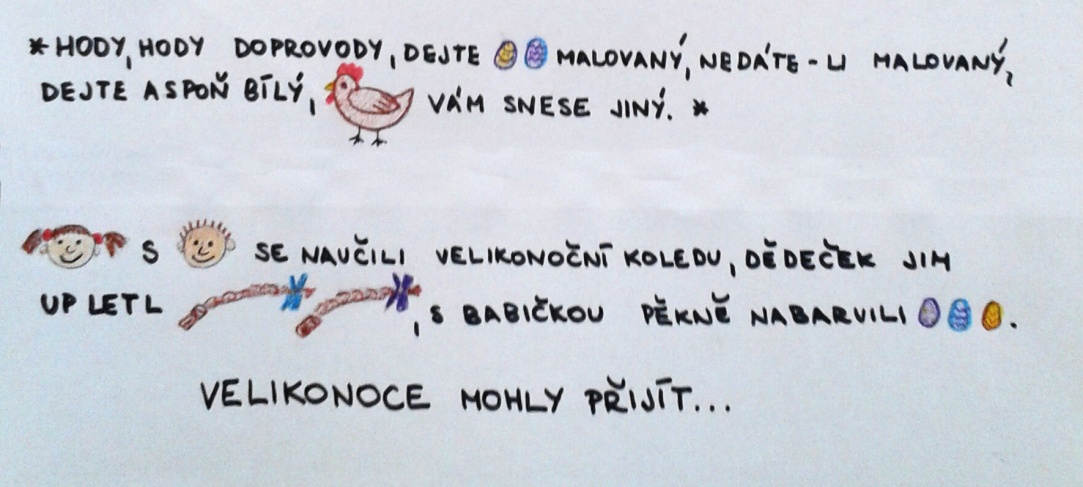 * HODY, HODY DOPROVODY, DEJTE MALOVANÝ, NEDÁTE-LI MALOVANÝ,
DEJTE ASPOŇ BÍLÝ, VÁM SNESE JINÝ. *
S SE NAUČILI VELIKONOČNÍ KOLEDU, DĚDEČEK JIM
UPLETL , S BABIČKOU PĚKNĚ NABARVILI .
VELIKONOCE MOHLY PŘIJÍT...